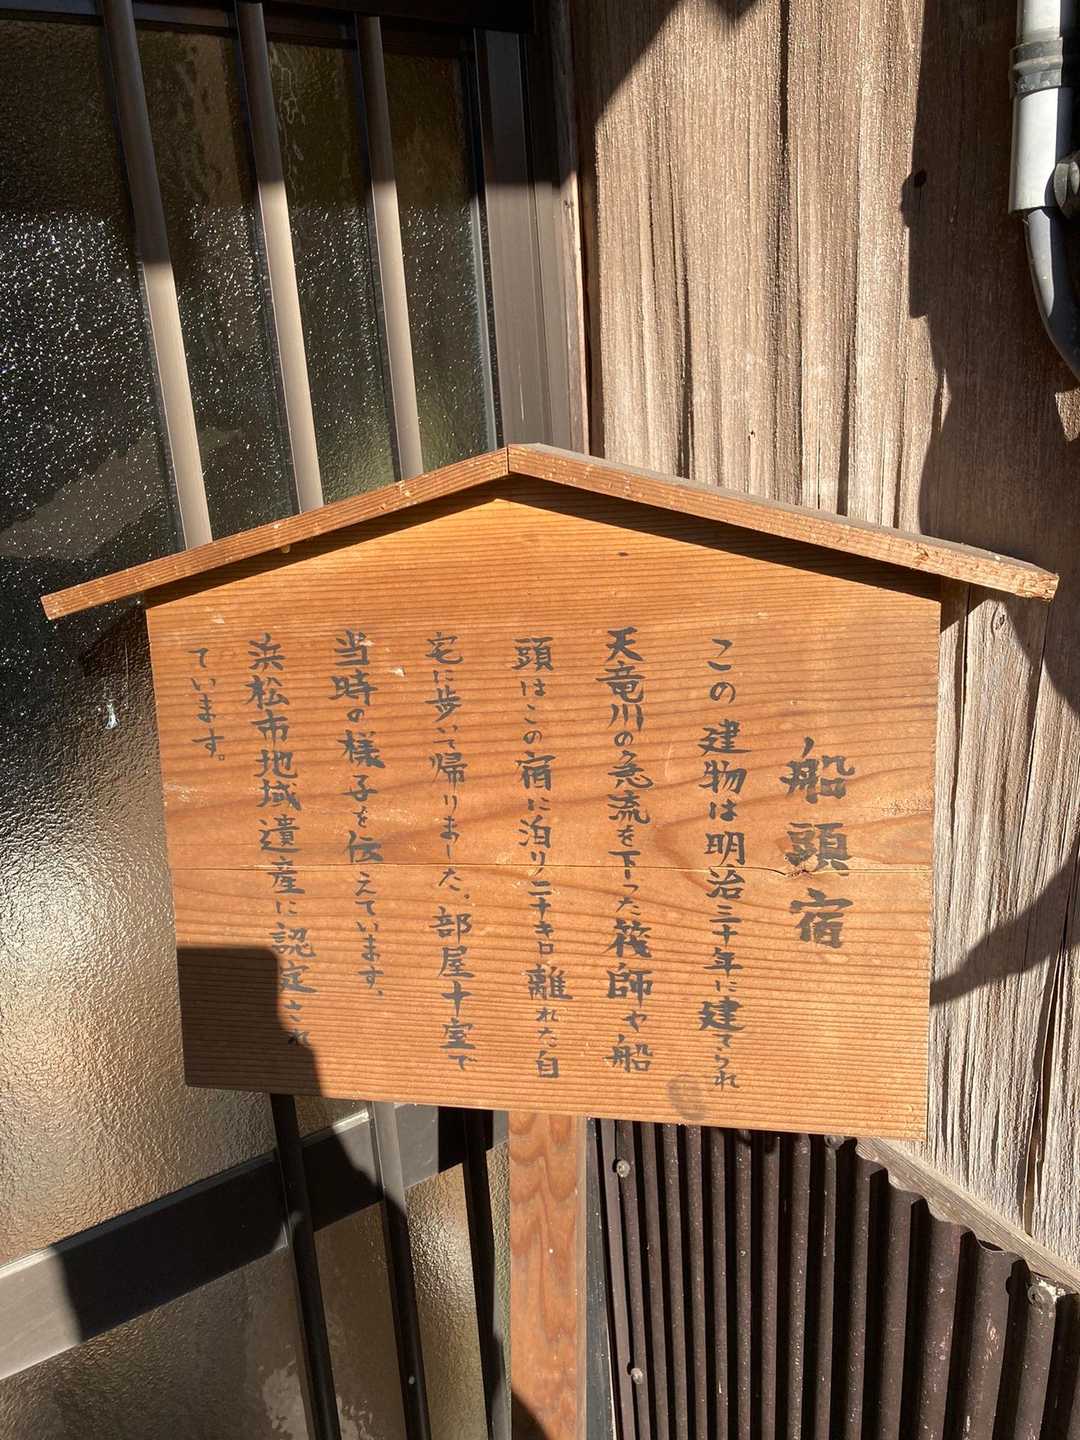 船頭宿
この建物は明治三十年に建てられ
天竜川の急流を下った筏師や船
頭はこの宿に泊り二十キロ離れた自
宅に歩いて帰りました、部屋十室で
当時の様子を伝えています、
浜松市地域遺産に認定され
ています。